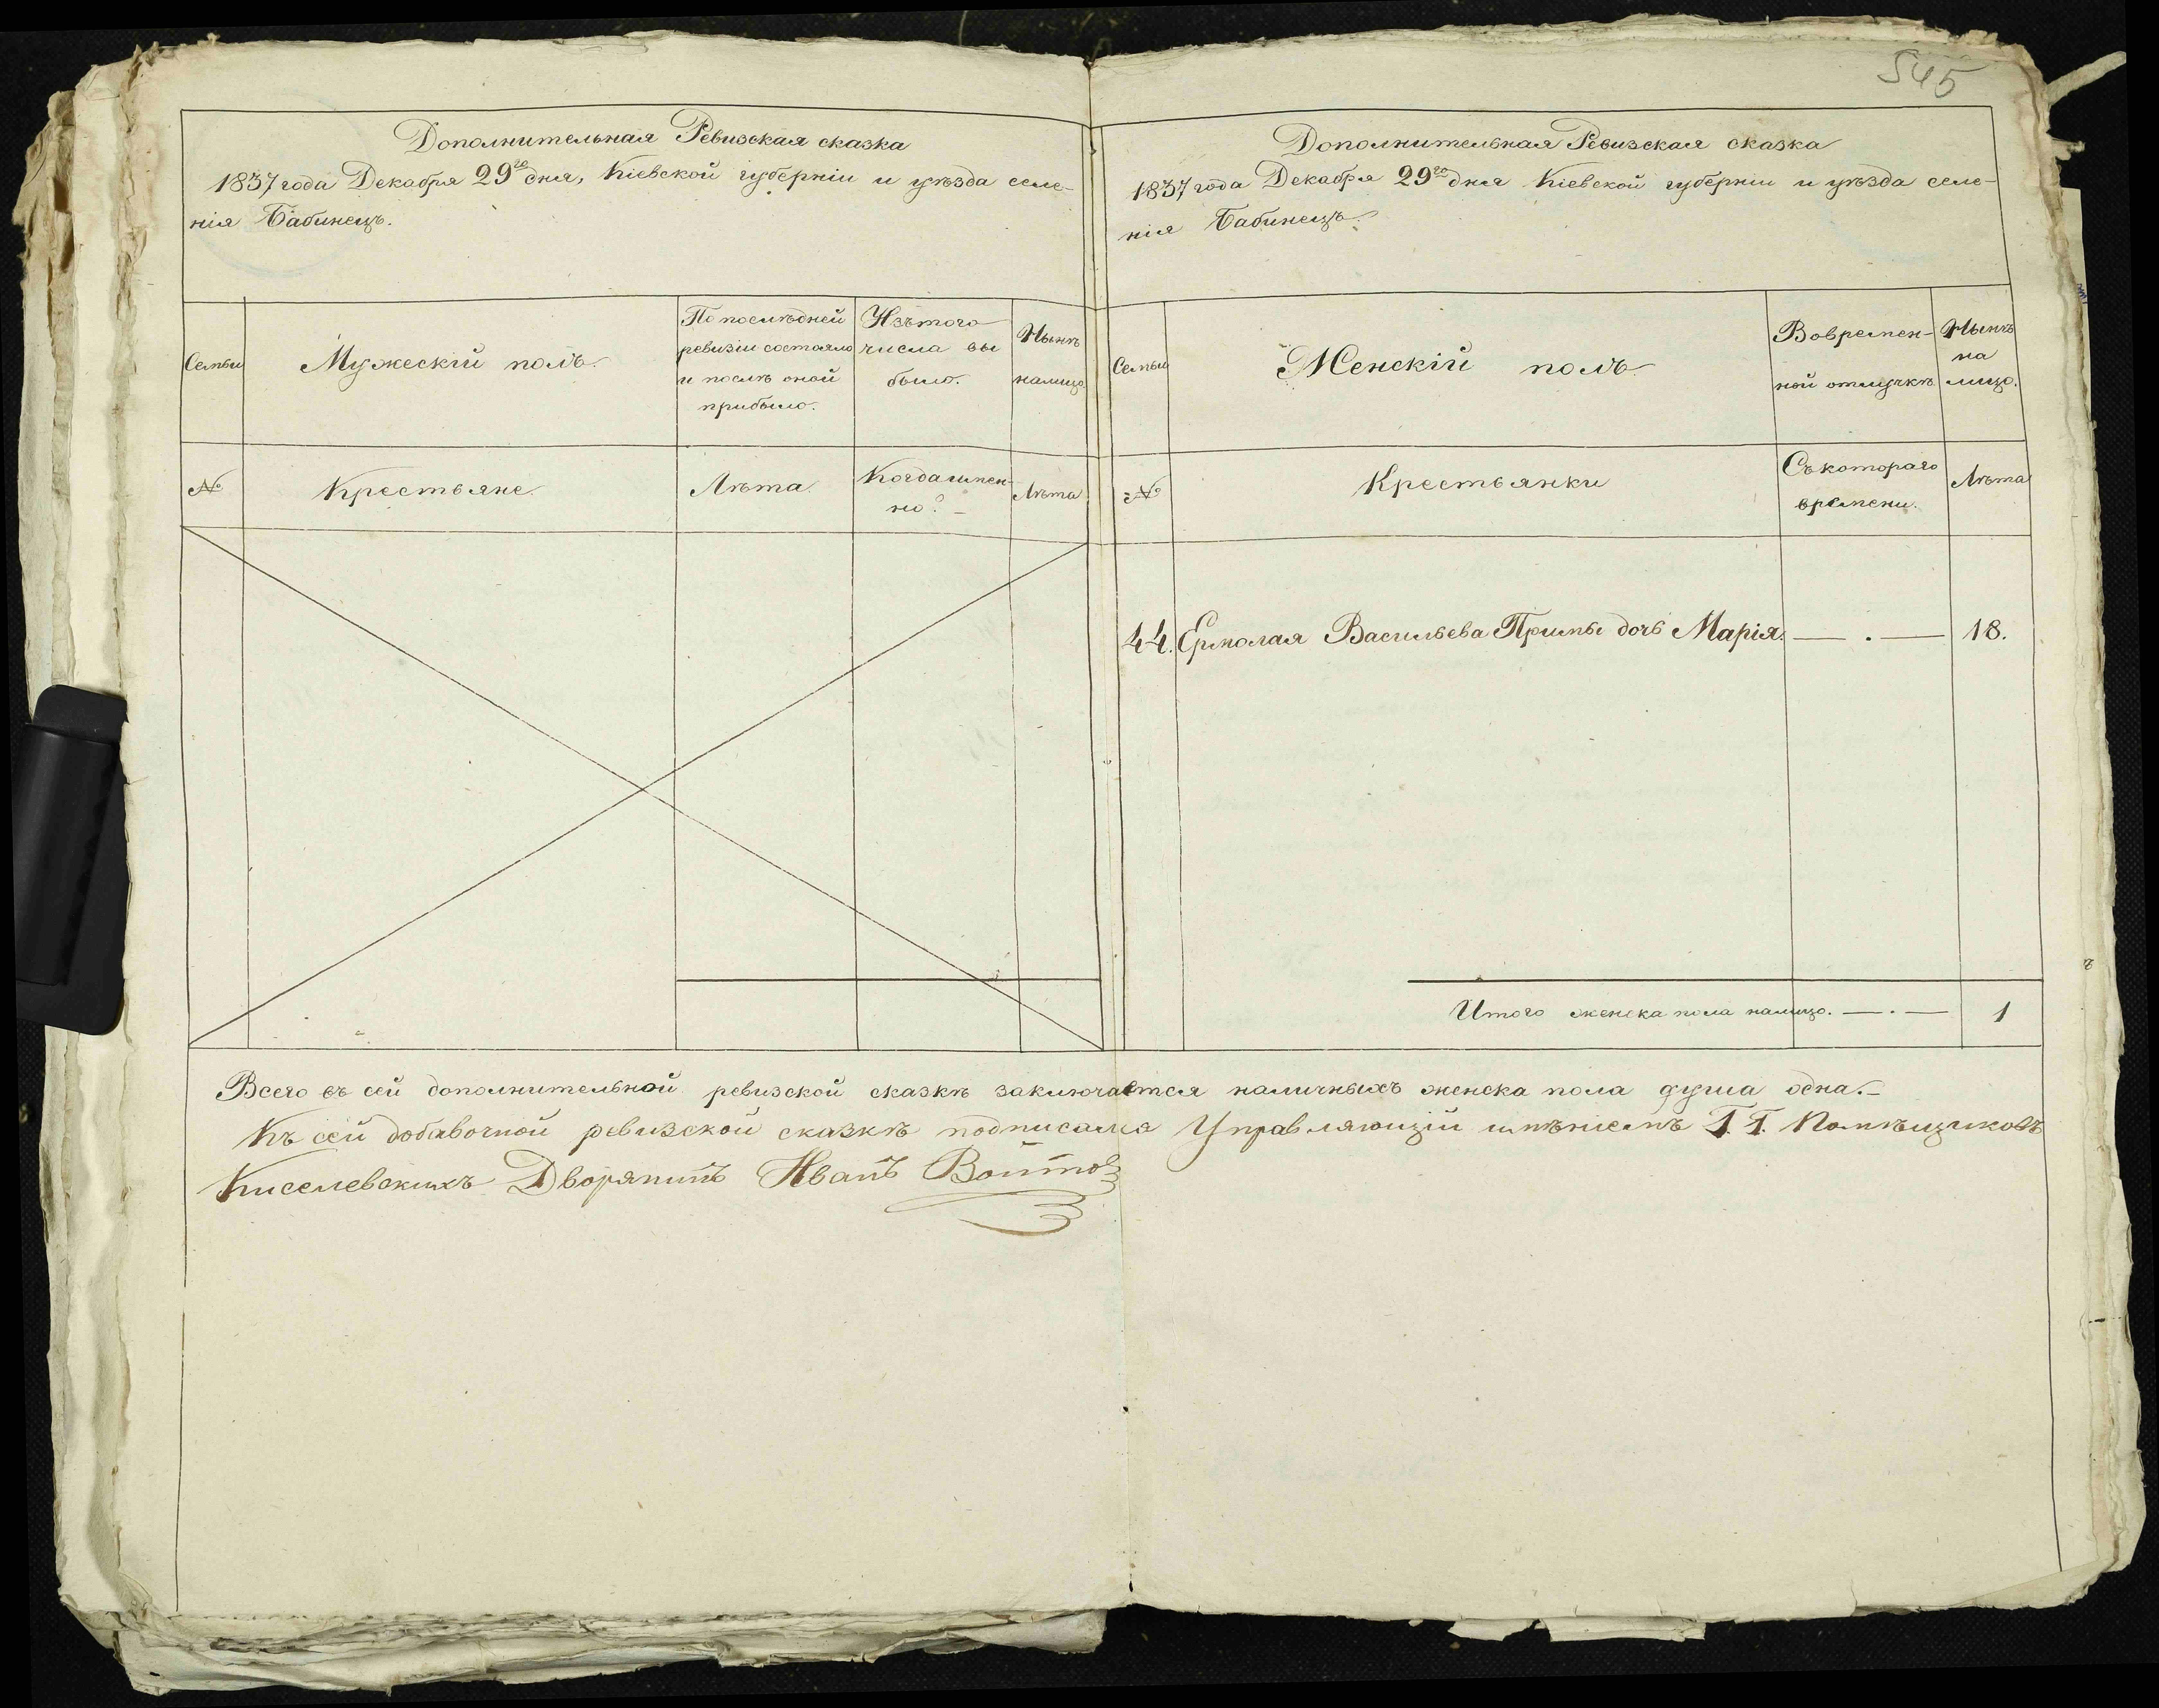 545
Дополнительная Ревизская сказка
1837 года Декабря 29го дня, Кіевской губерніи и уѣзда селе-
нія Бабинецъ.
Семьи
Мужескій полъ.
По послѣдней
ревизіи состояло
и послѣ оной
прибыло.
Изъ того
числа вы
было.
Нынѣ
налицо
№
Крестьяне.
Лѣта.
Когда имен-
но?
Лѣта
Дополнительная Ревизская сказка
1837 года Декабря 29го дня Кіевской губерніи и уѣзда селе-
нія Бабинецъ.
Семьи
Женскій полъ
Вовремен-
ной отлучкѣ
Нынѣ
на
лицо.
№
Крестьянки
Съ котораго
времени.
Лѣта
44. Ермолая Васильева Примы дочь Марія. — . — 18.
Итого женска пола налицо. — . — 1
Всего въ сей дополнительной ревизской сказкѣ заключается наличныхъ женска пола душа одна.
Къ сей добавочной ревизской сказкѣ подписался Управляющій имѣніемъ Г. Г. Помѣщиковъ
Киселевскихъ Дворянинъ Иванъ